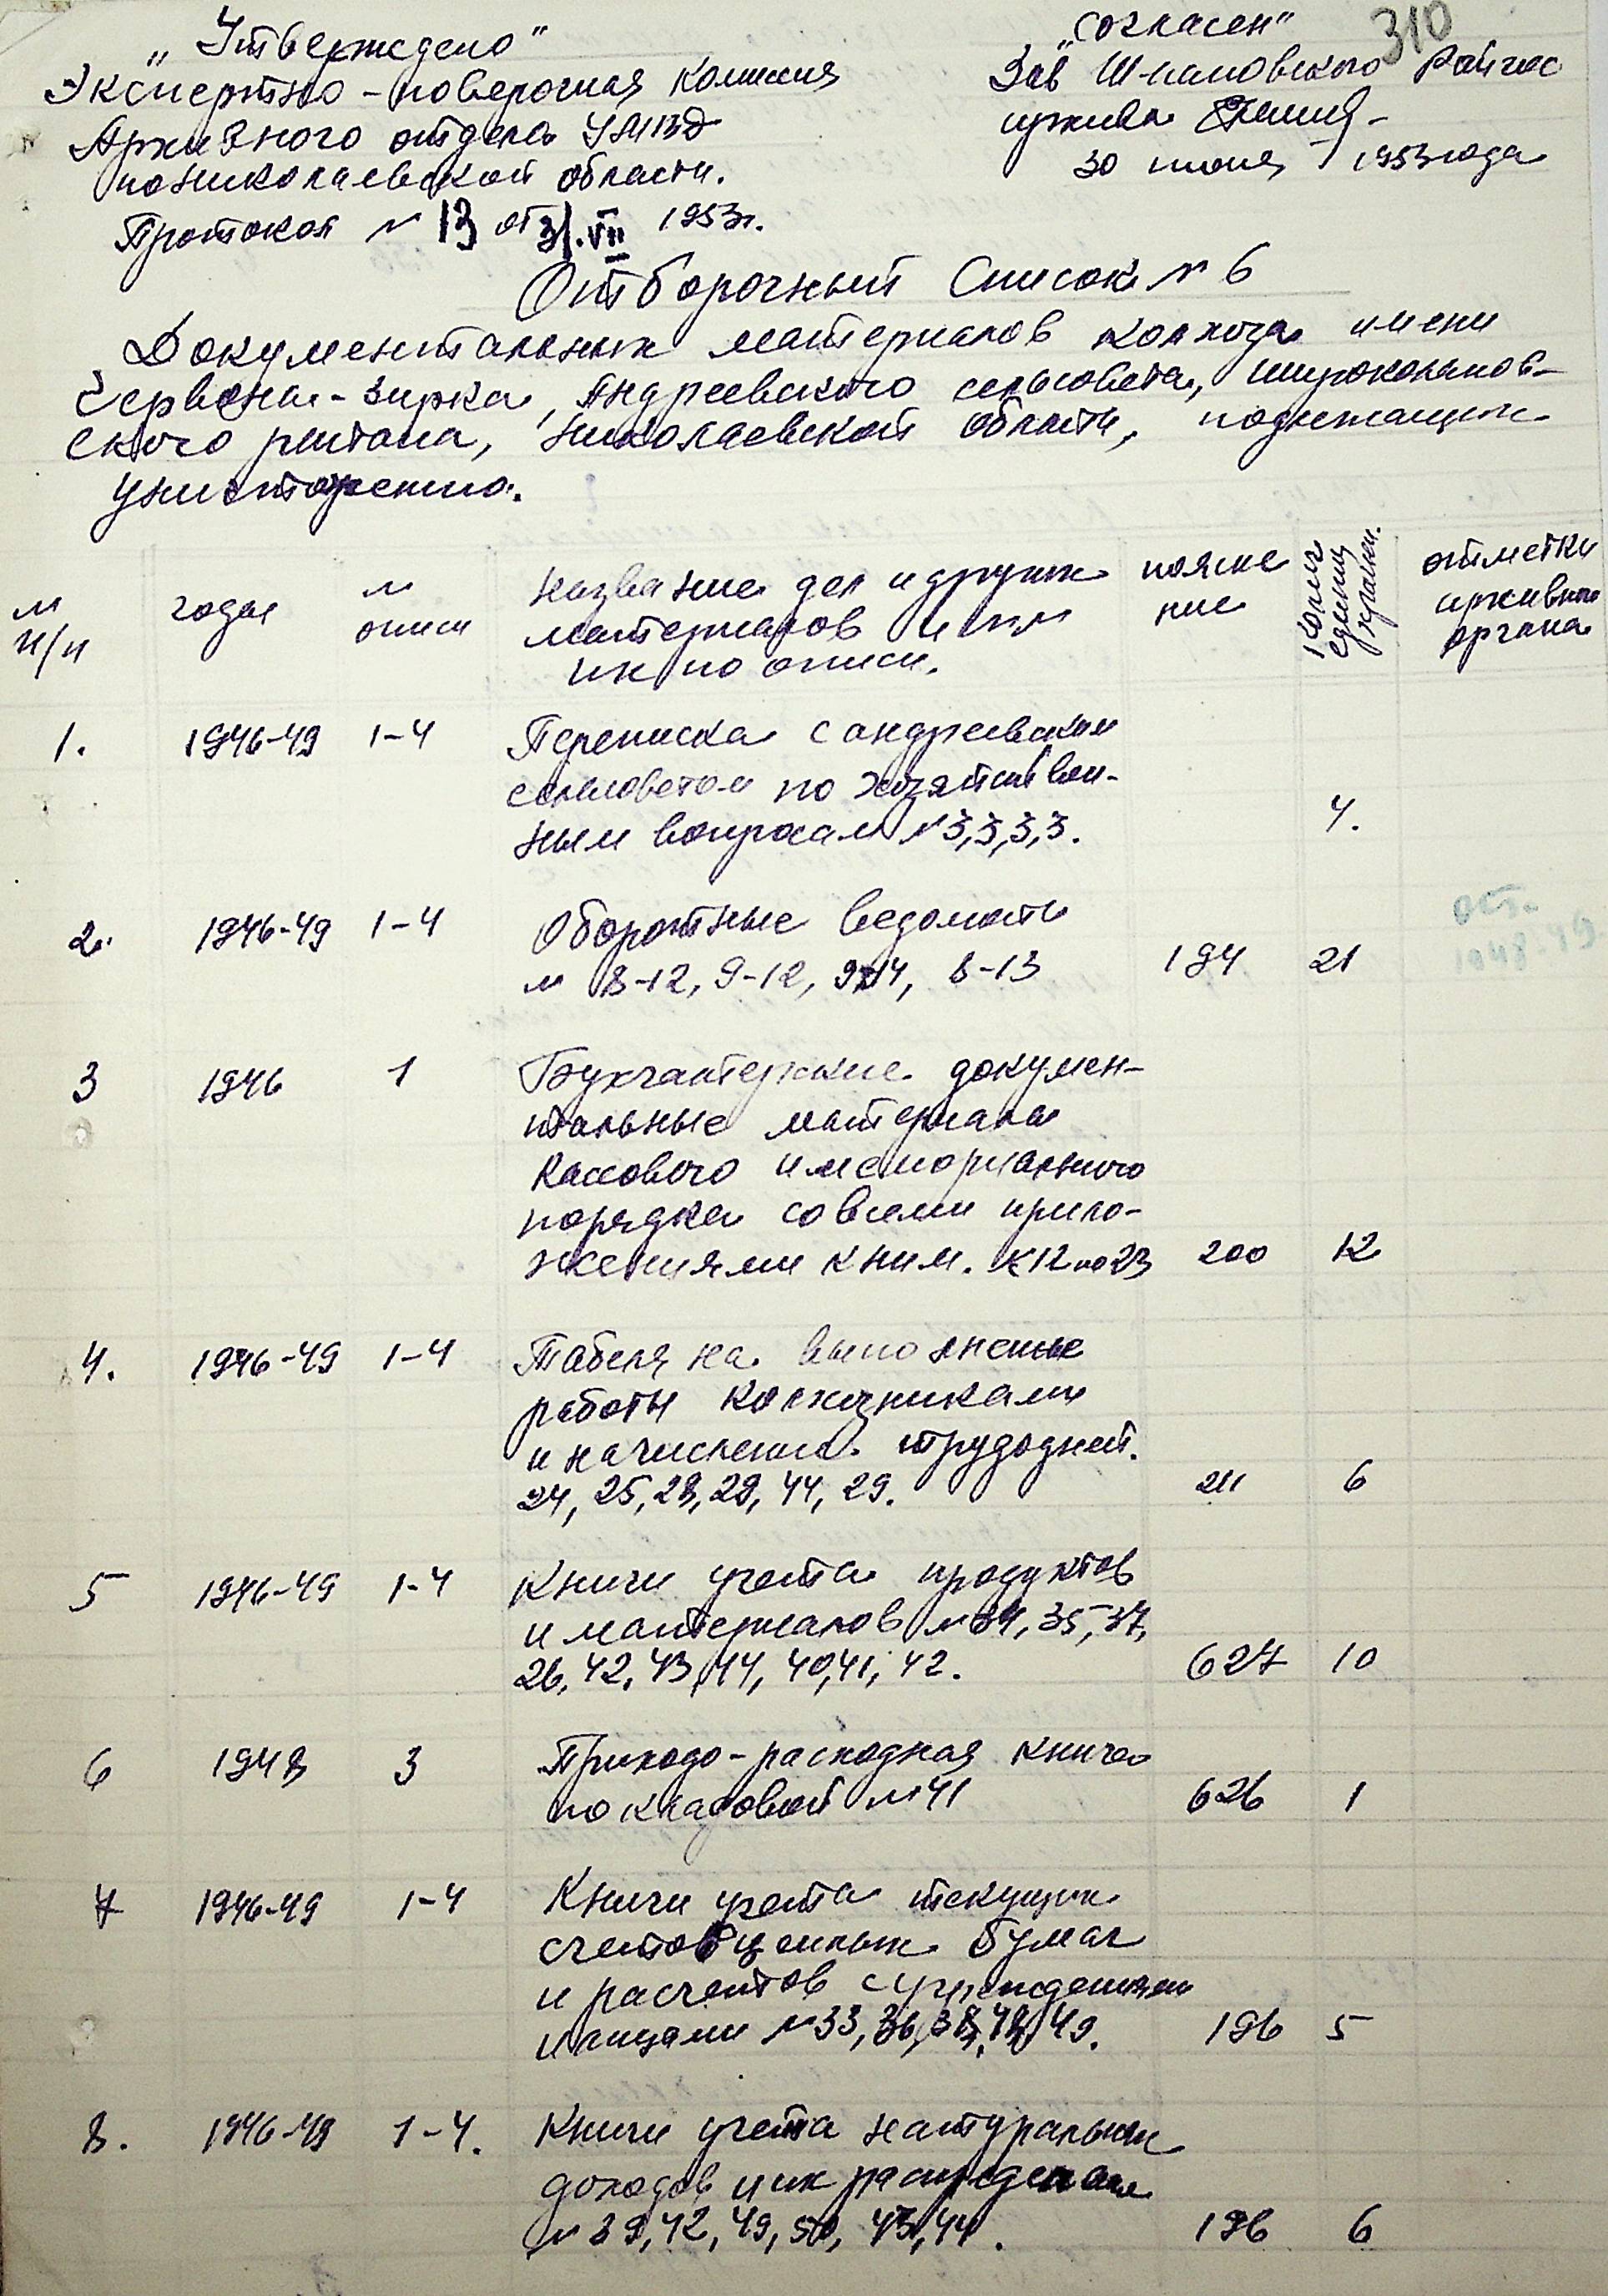 310
„Утверждено"
Экспертно-поверочная Комиссия
Архивного отдела УМВД
по Николаевской области.
Протокол № 13 от 31.VII 1953г.
„Согласен"
Зав Ш-лановского Райгос
архива
30 июня 1953 года
Отборочный Список № 6
Документальных материалов колхоза имени
Червона-Зирка, Андреевского сельсовета, Широколанов-
ского района, Николаевской области, подлежащих
уничтожению.
№ п/п
года
№ описи
Название дел и других
материалов и №№
их по описи.
поясне
ние
Колич
единиц
хранен.
отметки
архивного
органа
1. 1946-49 1-4 Переписка с андреевским
сельсоветом по хозяйствен-
ным вопросам № 3,3,3,3. 4.
2. 1946-49 1-4 Оборотные ведомости
№ 8-12, 9-12, 9-14, 8-13 194 21
ост.
1948-49
3 1946 1 Бухгалтерские докумен-
тальные материалы
Кассового и мемориального
порядка со всеми прило-
жениями к ним. с 12 по 23 200 12
4. 1946-49 1-4 Табеля на выполнение
работы колхозниками
и начисление трудодней.
24, 25, 28, 29, 44, 29. 211 6
5 1946-49 1-4 Книги учета продуктов
и материалов № 34, 35, 37,
26, 42, 43, 44, 40, 41, 42. 627 10
6 1948 3 Приходо-расходная книга
по кладовой № 41 626 1
7 1946-49 1-4 Книги учета текущих
счетов ценных бумаг
и расчетов с учреждениями
и лицами № 33, 36, 38, 48, 49. 196 5
8. 1946-49 1-4. Книги учета натуральных
доходов и их распределения
№ 39, 42, 49, 50, 43, 44. 196 6